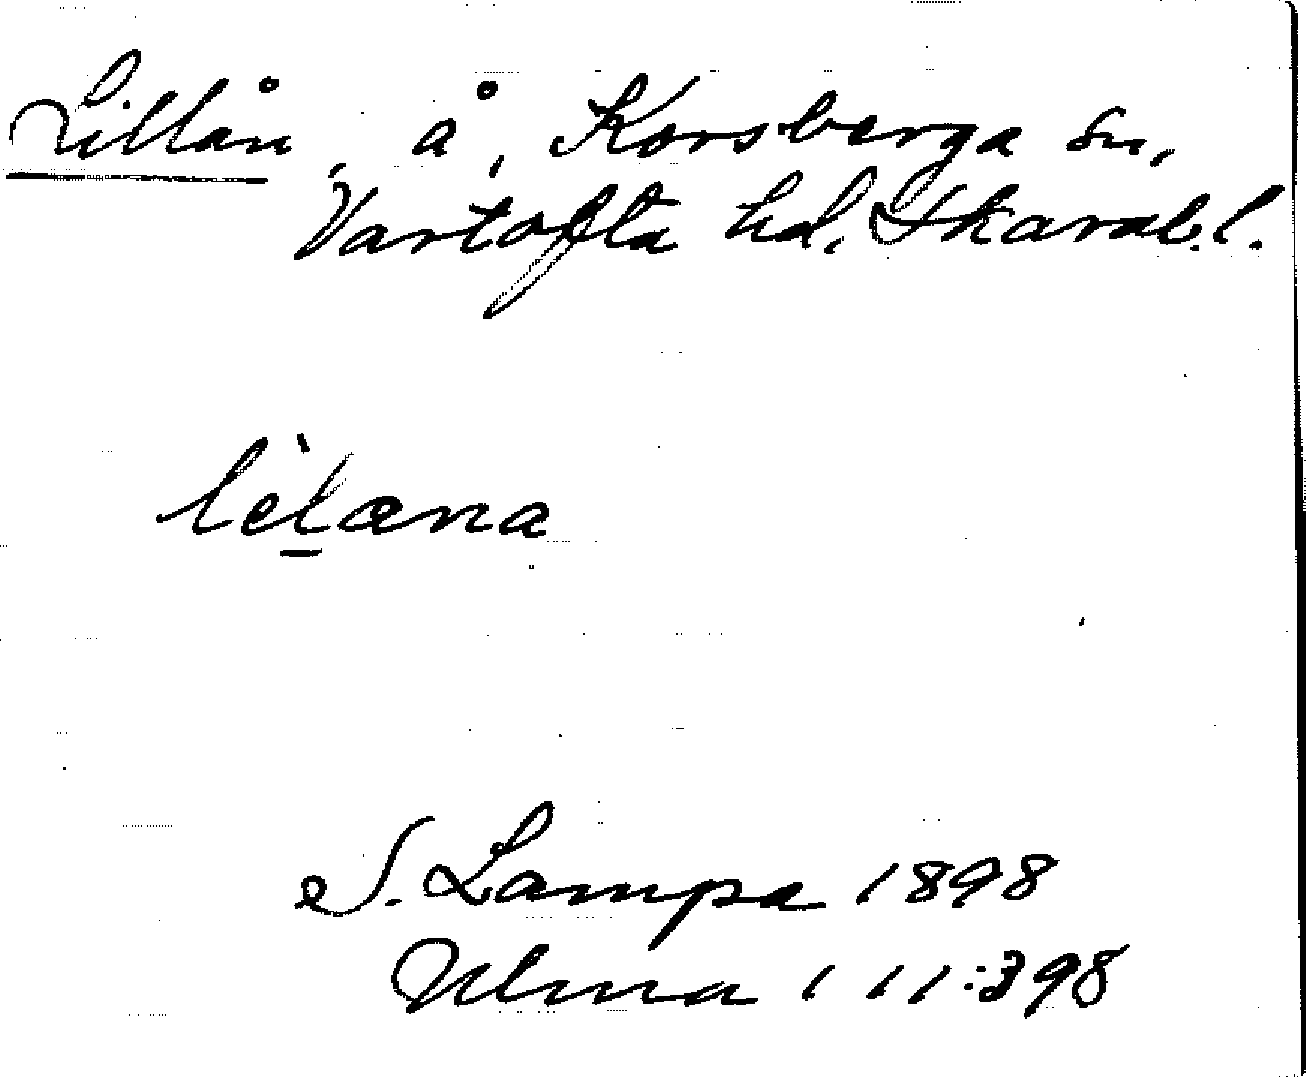 Lillån, å, Korsberga sn,
Vartofta hd, Skarab.l.
lèlæna
S. Lampa 1898
Ulma 1 11:398